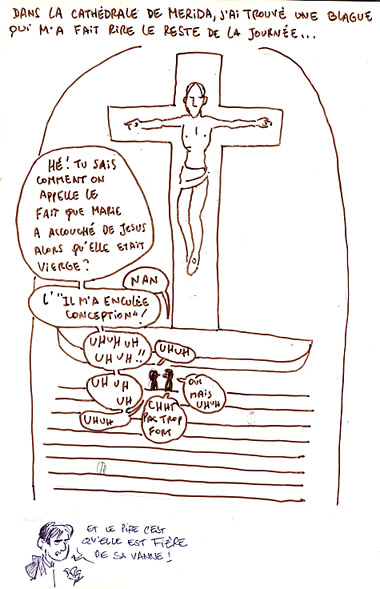 DANS LA CATHÉDRALE DE MERIDA, J'AI TROUVÉ UNE BLAGUE
QUI M'A FAIT RIRE LE RESTE DE LA JOURNÉE...
HÉ! TU SAIS
COMMENT ON
APPELLE LE
FAIT QUE MARIE
A ACCOUCHÉ DE JESUS
ALORS QU'ELLE ETAIT
VIERGE?
NAN
L'"IL M'A ENCULÉE
CONCEPTION"!
UHUH UH
UH UH!!
UHUH
UH UH
UH
OUI
MAIS
UHUH
CHHT
PAS TROP
FORT
UHUH
ET LE PIRE C'EST
QU'ELLE EST FIÈRE
DE SA VANNE!